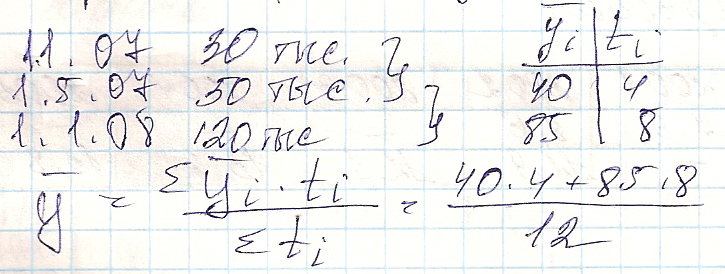 1.1.07 30 тыс. }
1.5.07 50 тыс. }
1.1.08 120 тыс }
ȳi | ti
40 | 4
85 | 8
ȳ = Σ ȳi · ti / Σ ti = 40·4+85·8 / 12